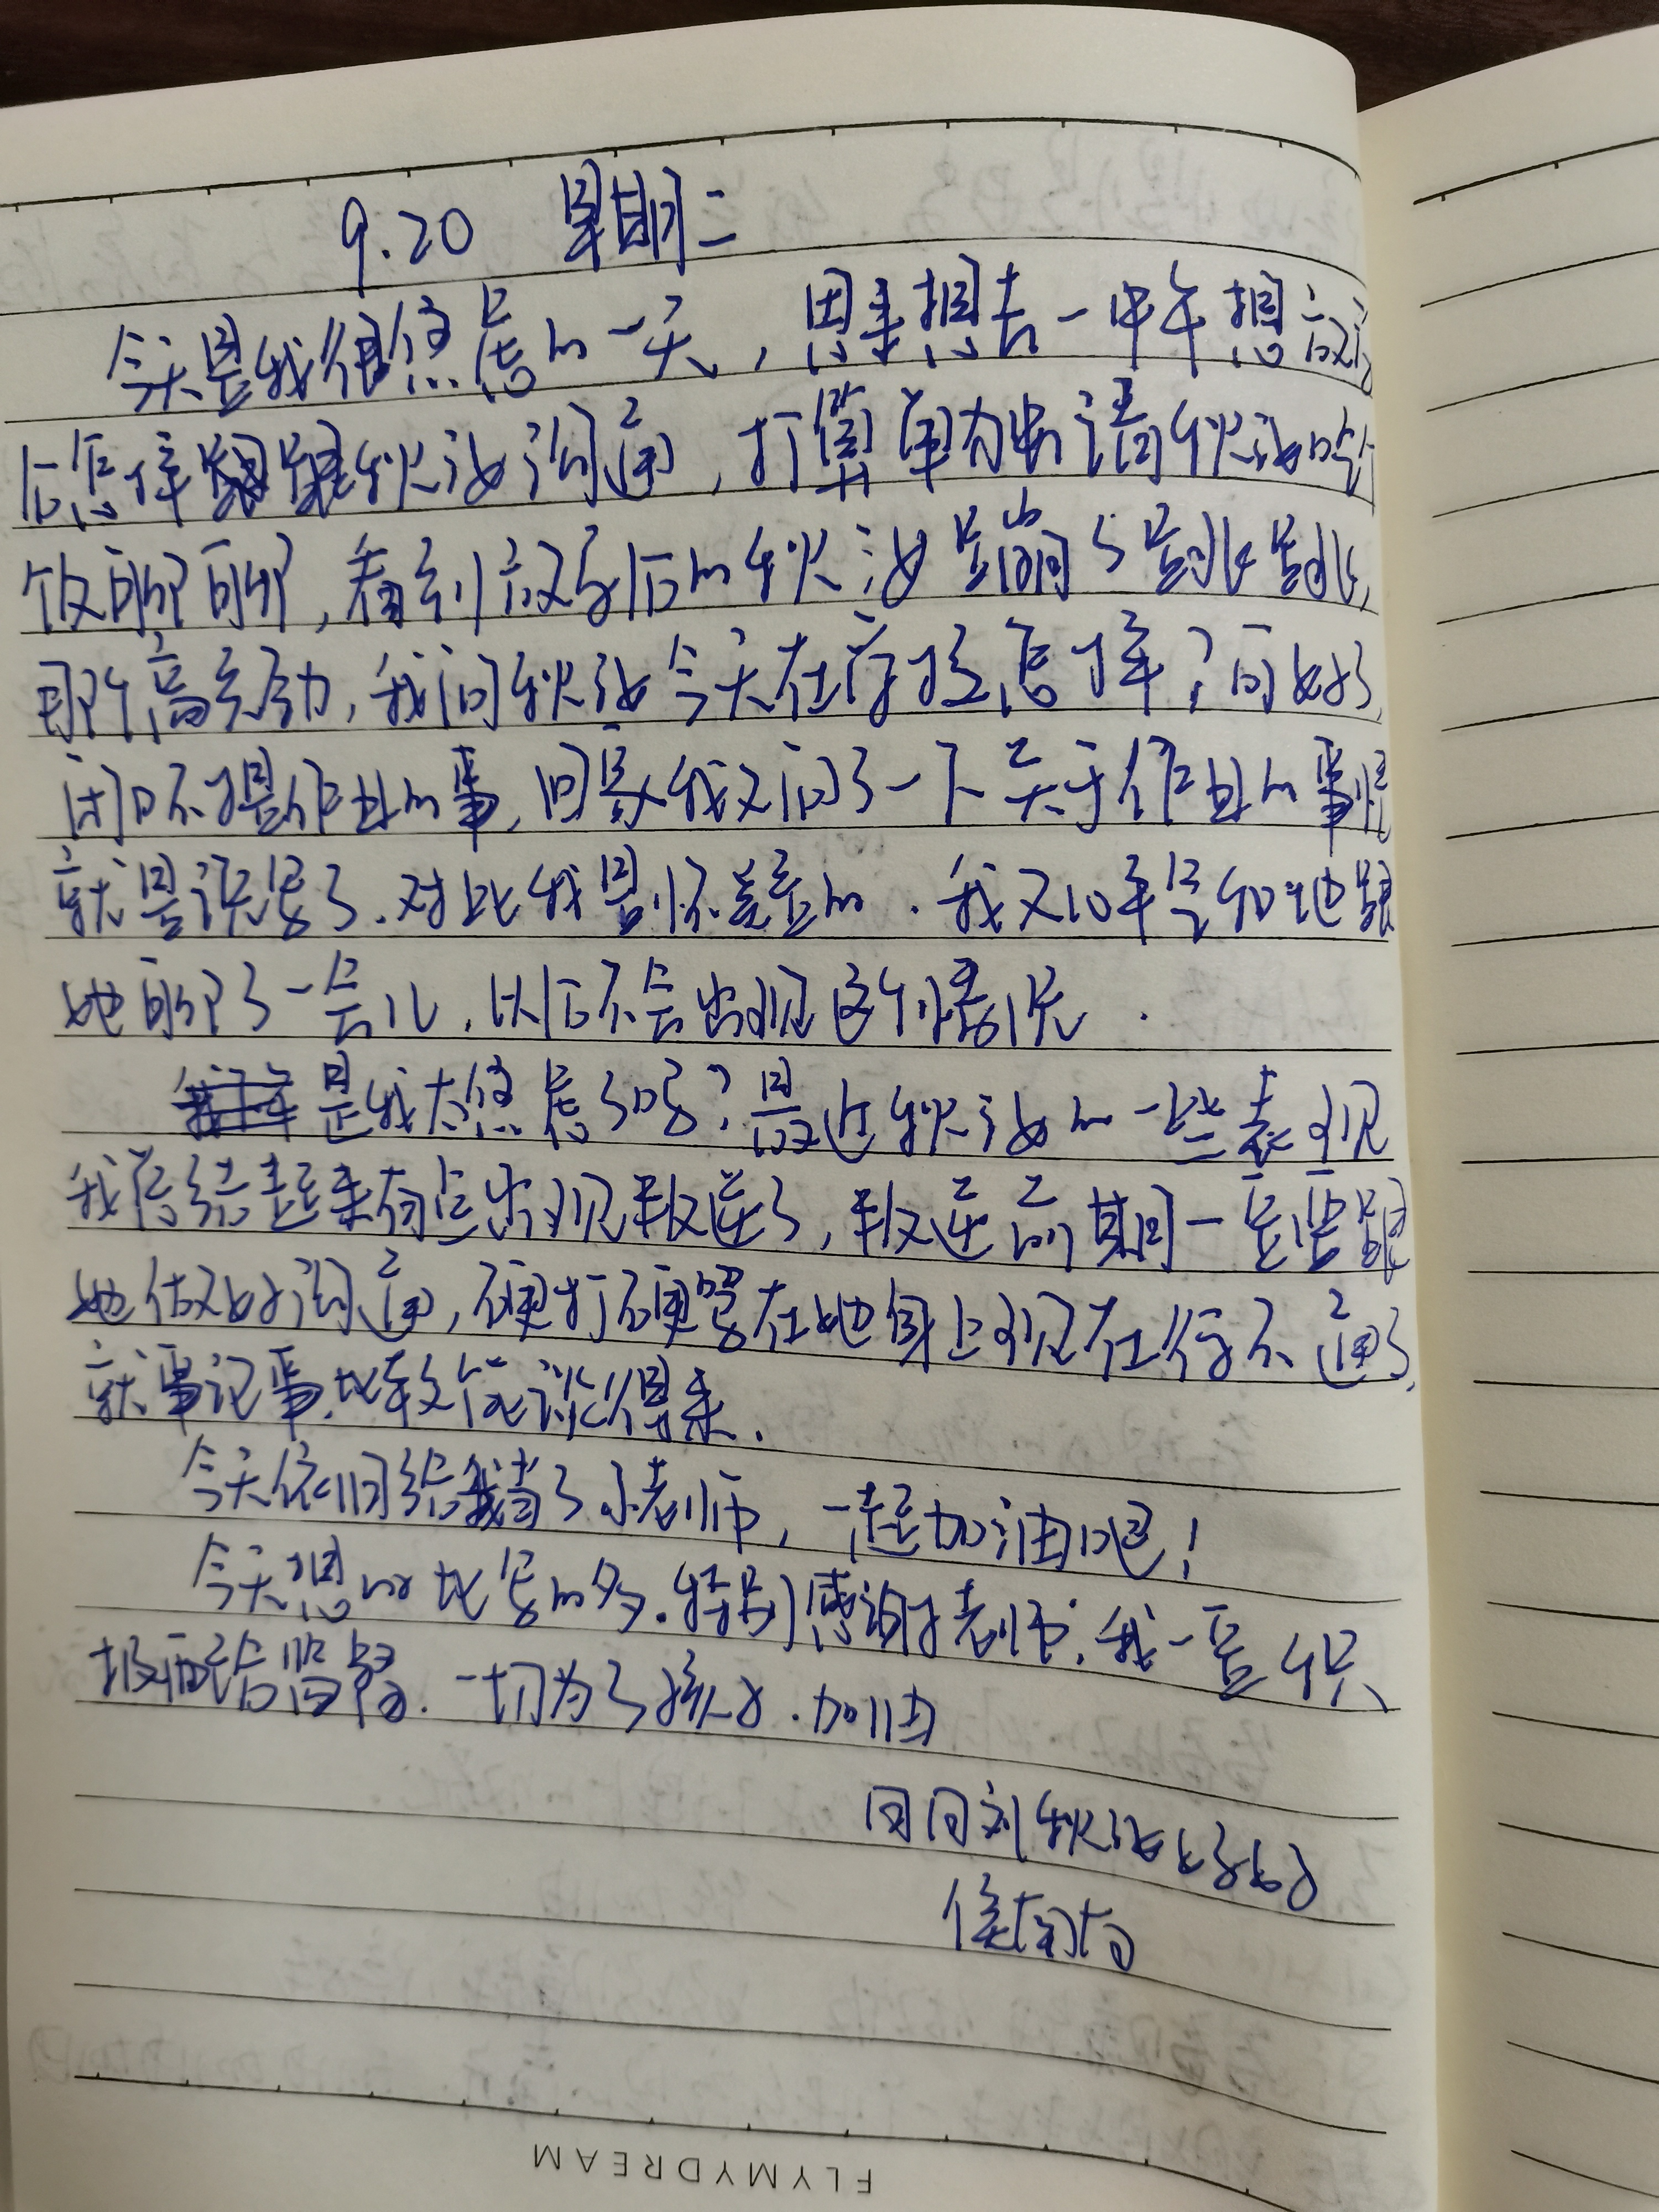 9.20 星期二
今天是我很焦虑的一天，思来想去一中午想放学
后怎样跟秋泓沟通，打算单独出请秋泓吃个
饭聊聊，看到放学后的秋泓是蹦了蹦跳跳，
那个高兴劲，我问秋泓今天在学校怎样？可好了
闭口不提作业的事，回家我又问了一下关于作业的事情
就是误会了．对比我是怀疑的．我又10平心和地跟
她聊了一会儿，以后不会出现这个情况．
是我太焦虑了吗？最近秋泓的一些表现
我总结起来有点出现叛逆了，叛逆前期一定要跟
她做好沟通，硬打硬骂在她身上现在行不通了，
就事记事．比较能谈得来．
今天依旧给我当了小老师，一起加油吧！
今天想的比写的多．特别感谢老师．我一定积
极配合监督．一切为了孩子．加油
同同刘秋泓妈妈
侯姑姑
FLYMYDREAM